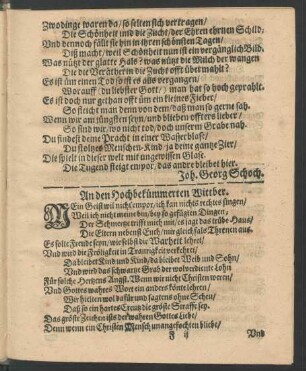 Zwo dinge waren da / so selten sich vertragen /
Die Schönheit und die Zucht / der Ehren ehrnen Schild /
Und dennoch fällt sie hin in ihren schönsten Tagen /
Diß macht / weil Schönheit nun ist ein vergänglich Bild.
Was nützt der glatte Hals? was nützt die Milch der wangen
Die die Verätherin die Zucht offt übermahlt?
Es ist üm einen Tod so ist es alls vergangen /
Worauff / du liebster Gott / man hat so hoch geprahlt.
Es ist doch nur gethan offt üm ein kleines Fieber /
So steigt man denn von dem / daß man so gerne sah.
Wenn wir am jüngsten seyn / und blieben offters lieber /
So sind wir / wo nicht todt / doch unserm Grabe nah.
Du findest deine Pracht in einer Wasserblase /
Du stoltzes Menschen-Kind / ja deine gantze Zier /
Die spielt in dieser welt mit ungewissen Glase.
Die Tugend steigt empor, das andre bleibet hier.
Joh. Georg Schoch.
An den Hochbekümmerten Wittber.
Mein Geist wil nicht empor, ich kan nichts rechtes singen /
Weil ich nicht meine bin / bey so gefäßten Dingen /
Der Schmertze trifft mich mit / es jagt das trübe Haus /
Die Eltern nebenst Euch / mir gleichfals Threnen aus.
Es solte Freude seyn / wie selbst die Warheit lehret /
Und wird die Frölikeit in Traurigkeit verkehret /
Da bleibet Kind und Kind / da bleibet Weib und Sohn /
Und wird das schwartze Grab der wolverdiente Lohn
Für solche Hertzens Angst. Wenn wir nicht Christen weren /
Und Gottes wahres Wort ein anders könte lehren /
Wir hielten wol dafür und sagtens ohne Scheu /
Daß so ein hartes Creutz die gröste Straffe sey.
Das gröste Zeichen ists der wahren Gottes Liebe /
Denn wenn ein Christen Mensch unangefochten bliebe /
F ij
Und